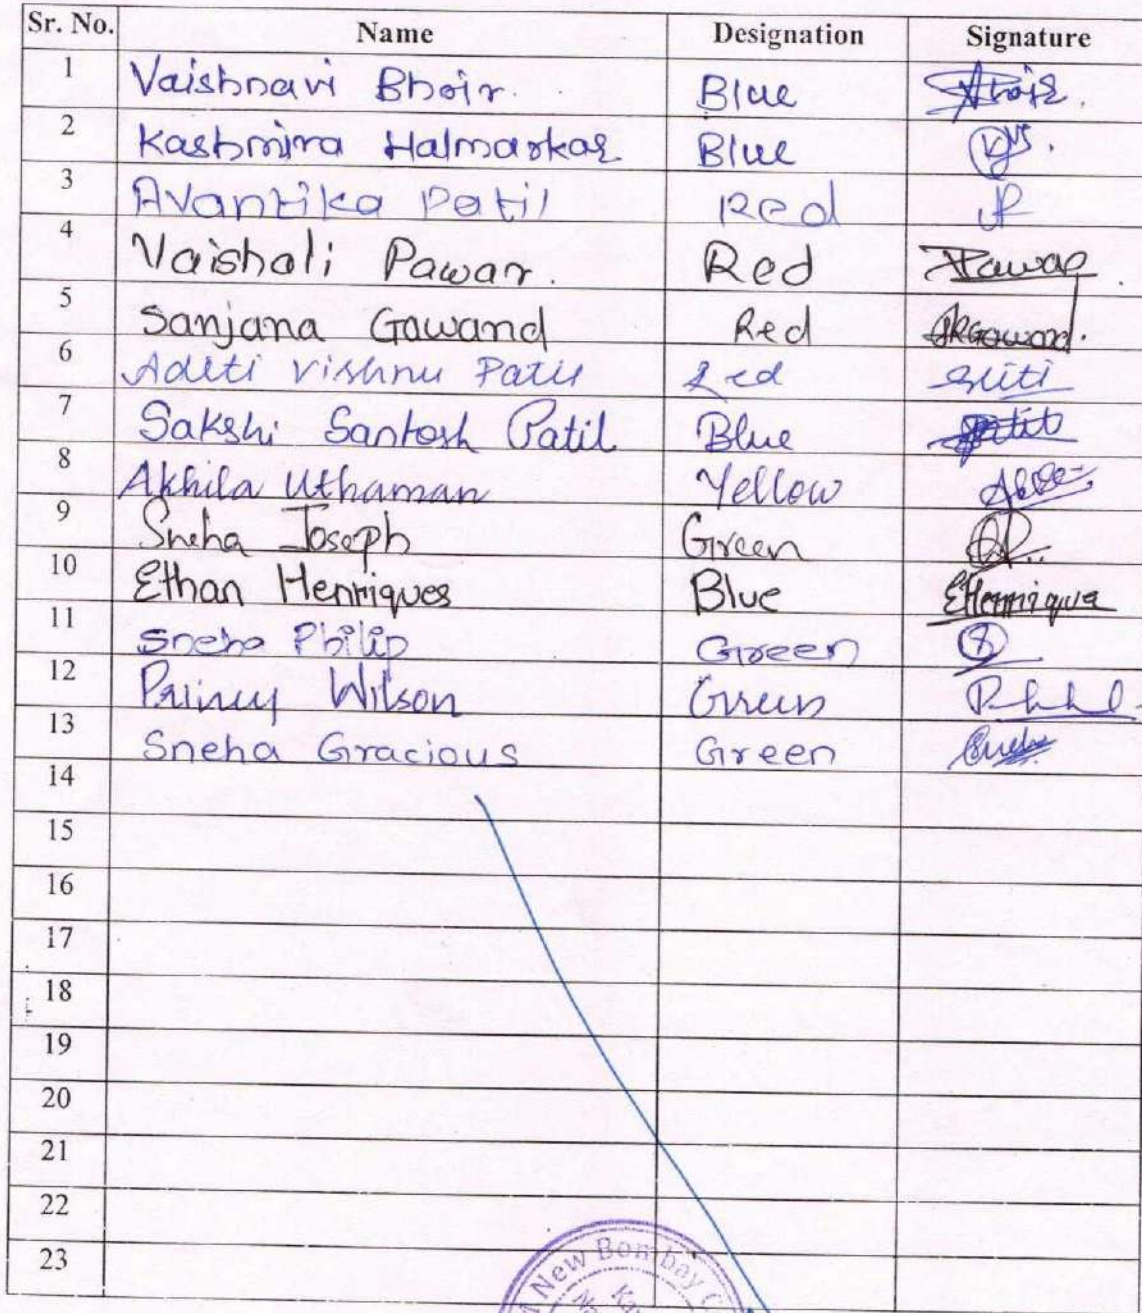 Sr. No. Name Designation Signature
1 Vaishnavi Bhoir. Blue Bhoir.
2 Kashmira Halmarkar Blue
3 Avantika Patil Red
4 Vaishali Pawar. Red Pawar
5 Sanjana Gawand Red SRGawand.
6 Aditi Vishnu Patil Red
7 Sakshi Santosh Patil Blue Patil
8 Akhila Uthaman Yellow
9 Sneha Joseph Green
10 Ethan Henriques Blue EHenriques
11 Sneha Philip Green
12 Princy Wilson Green
13 Sneha Gracious Green
14
15
16
17
18
19
20
21
22
23
New Bombay